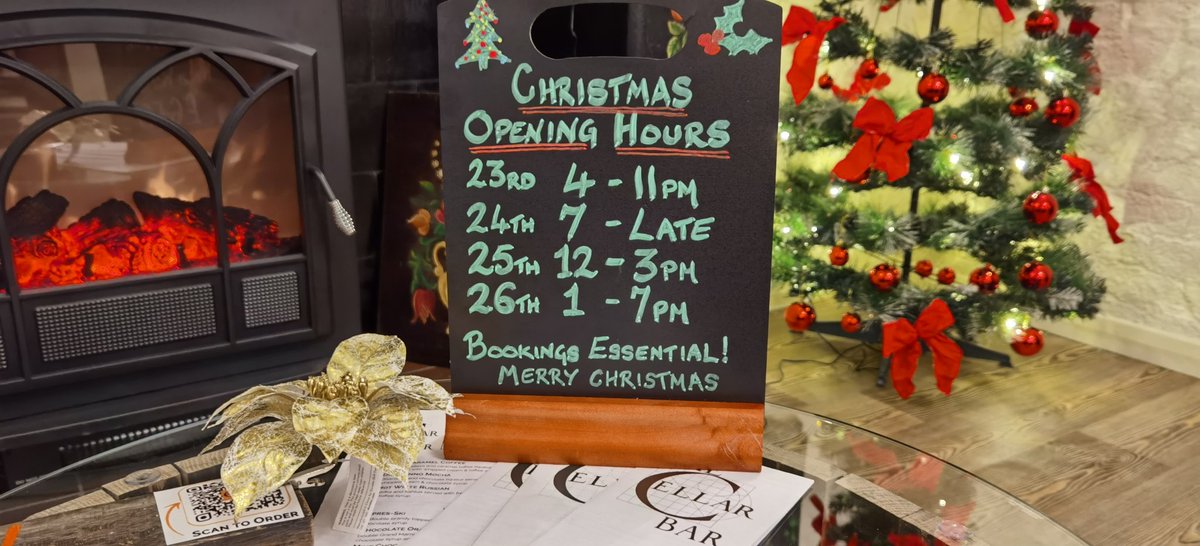 CHRISTMAS
OPENING HOURS
23RD 4 - 11PM
24TH 7 - LATE
25TH 12 - 3PM
26TH 1 - 7PM
BOOKINGS ESSENTIAL!
MERRY CHRISTMAS
CELLAR
BAR
SCAN TO ORDER